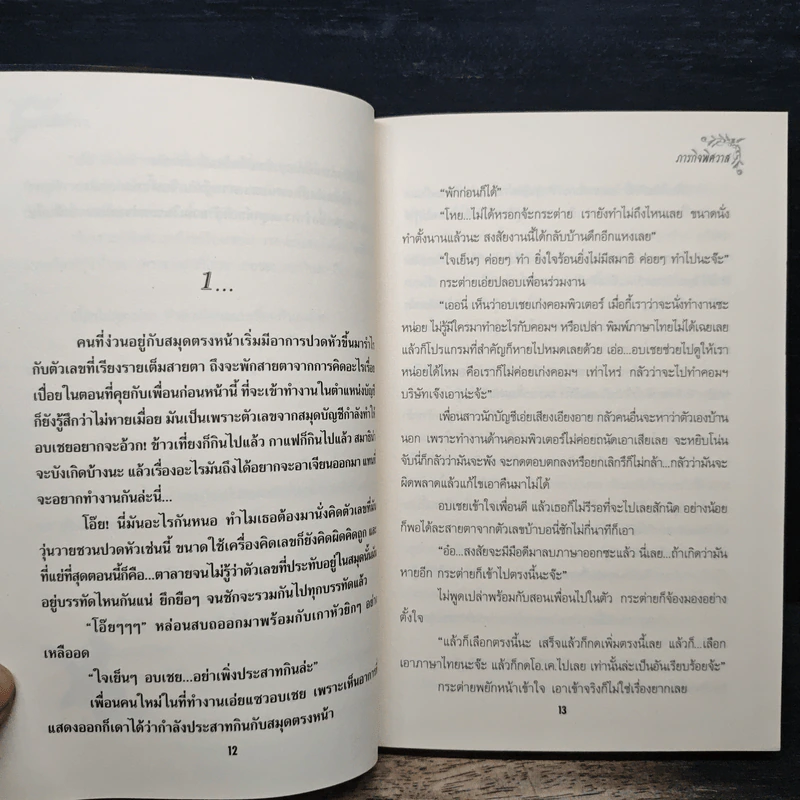 1...
คนที่ง่วนอยู่กับสมุดตรงหน้าเริ่มมีอาการปวดหัวขึ้นมารำไร
กับตัวเลขที่เรียงรายเต็มสายตา ถึงจะพักสายตาจากการคิดอะไรเรื่อย
เปื่อยในตอนที่คุยกับเพื่อนก่อนหน้านี้ ที่จะเข้าทำงานในตำแหน่งบัญชี
ก็ยังรู้สึกว่าไม่หายเมื่อย มันเป็นเพราะตัวเลขจากสมุดบัญชีกำลังทำให้
อบเชยอยากจะอ้วก! ข้าวเที่ยงก็กินไปแล้ว กาแฟก็กินไปแล้ว สมาธิน่า
จะบังเกิดบ้างนะ แล้วเรื่องอะไรมันถึงได้อยากจะอาเจียนออกมา แทนที่
จะอยากทำงานกันล่ะนี่...
โอ๊ย! นี่มันอะไรกันหนอ ทำไมเธอต้องมานั่งคิดตัวเลขที่มัน
วุ่นวายชวนปวดหัวเช่นนี้ ขนาดใช้เครื่องคิดเลขก็ยังคิดผิดคิดถูก และ
ที่แย่ที่สุดตอนนี้ก็คือ...ตาลายจนไม่รู้ว่าตัวเลขที่ประทับอยู่ในสมุดนั้นมัน
อยู่บรรทัดไหนกันแน่ ยึกยือๆ จนชักจะรวมกันไปทุกบรรทัดแล้ว
“โอ๊ยๆๆๆ” หล่อนสบถออกมาพร้อมกับเกาหัวยิกๆ อย่าง
เหลืออด
“ใจเย็นๆ อบเชย...อย่าเพิ่งประสาทกินล่ะ”
เพื่อนคนใหม่ในที่ทำงานเอ่ยแซวอบเชย เพราะเห็นอาการที่
แสดงออกก็เดาได้ว่ากำลังประสาทกินกับสมุดตรงหน้า
12
ภารกิจพิศวาส
“พักก่อนก็ได้”
“โหย...ไม่ได้หรอกจ้ะกระต่าย เรายังทำไม่ถึงไหนเลย ขนาดนั่ง
ทำตั้งนานแล้วนะ สงสัยงานนี้ได้กลับบ้านดึกอีกแหงเลย”
“ใจเย็นๆ ค่อยๆ ทำ ยิ่งใจร้อนยิ่งไม่มีสมาธิ ค่อยๆ ทำไปนะจ๊ะ”
กระต่ายเอ่ยปลอบเพื่อนร่วมงาน
“เออนี่ เห็นว่าอบเชยเก่งคอมพิวเตอร์ เมื่อกี้เราว่าจะนั่งทำงานซะ
หน่อย ไม่รู้มีใครมาทำอะไรกับคอมฯ หรือเปล่า พิมพ์ภาษาไทยไม่ได้เฉยเลย
แล้วก็โปรแกรมที่สำคัญก็หายไปหมดเลยด้วย เอ่อ...อบเชยช่วยไปดูให้เรา
หน่อยได้ไหม คือเราก็ไม่เก่งคอมฯ เท่าไหร่ กลัวว่าจะไปทำคอมฯ
บริษัทเจ๊งเอาน่ะจ๊ะ”
เพื่อนสาวนักบัญชีเอ่ยเสียงเอียงอาย กลัวคนอื่นจะหาว่าตัวเองบ้าน
นอก เพราะทำงานด้านคอมพิวเตอร์ไม่ค่อยถนัดเอาเสียเลย จะหยิบโน่น
จับนี่ก็กลัวว่ามันจะพัง จะกดตอบตกลงหรือยกเลิกรึก็ไม่กล้า...กลัวว่ามันจะ
ผิดพลาดแล้วแก้ไขเอาคืนมาไม่ได้
อบเชยเข้าใจเพื่อนดี แล้วเธอก็ไม่รีรอที่จะไปเลยสักนิด อย่างน้อย
ก็พอได้ละสายตาจากตัวเลขบ้าบอนี่ซักไม่กี่นาทีก็เอา
“อ๋อ...สงสัยจะมีมือดีมาลบภาษาออกซะแล้ว นี่เลย...ถ้าเกิดว่ามัน
หายอีก กระต่ายก็เข้าไปตรงนี้นะจ๊ะ”
ไม่พูดเปล่าพร้อมกับสอนเพื่อนไปในตัว กระต่ายก็จ้องมองอย่าง
ตั้งใจ
“แล้วก็เลือกตรงนี้นะ เสร็จแล้วก็กดเพิ่มตรงนี้เลย แล้วก็...เลือก
เอาภาษาไทยนะจ๊ะ แล้วก็กดโอ.เค.ไปเลย เท่านั้นล่ะเป็นอันเรียบร้อยจ้ะ”
กระต่ายพยักหน้าเข้าใจ เอาเข้าจริงก็ไม่ใช่เรื่องยากเลย
13